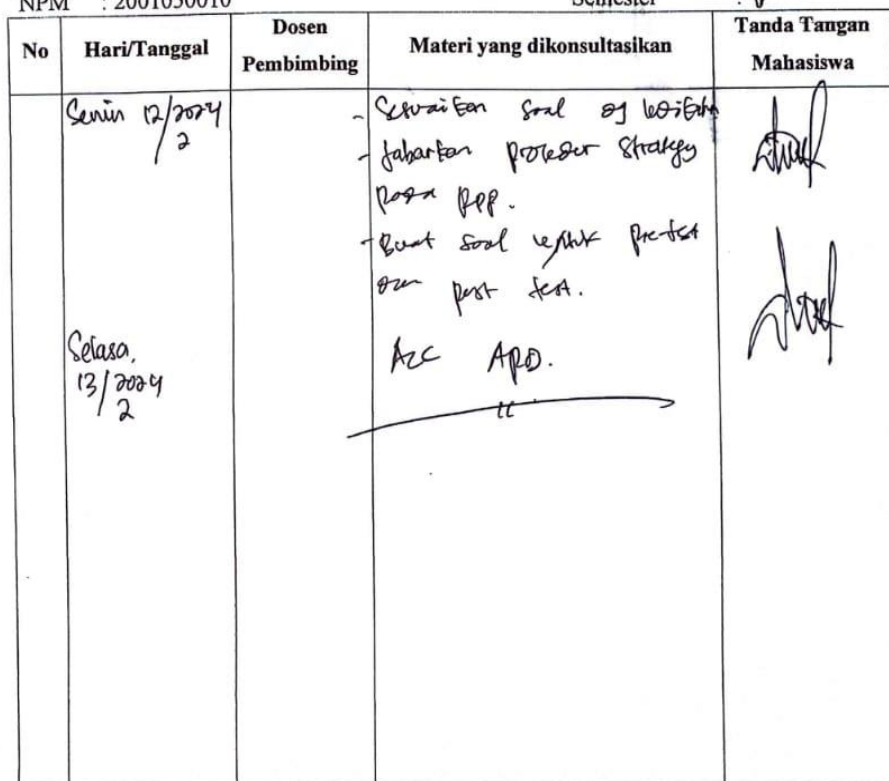 NPM : 2001050010 Semester : V
No Hari/Tanggal Dosen Pembimbing Materi yang dikonsultasikan Tanda Tangan Mahasiswa
Senin 12/2024
2
- Sesuaikan soal dg
- Jabarkan prosedur strategy
pada RPP.
- Buat soal untuk pre-test
dan post test.
Selasa,
13/2024
2
Acc APD.